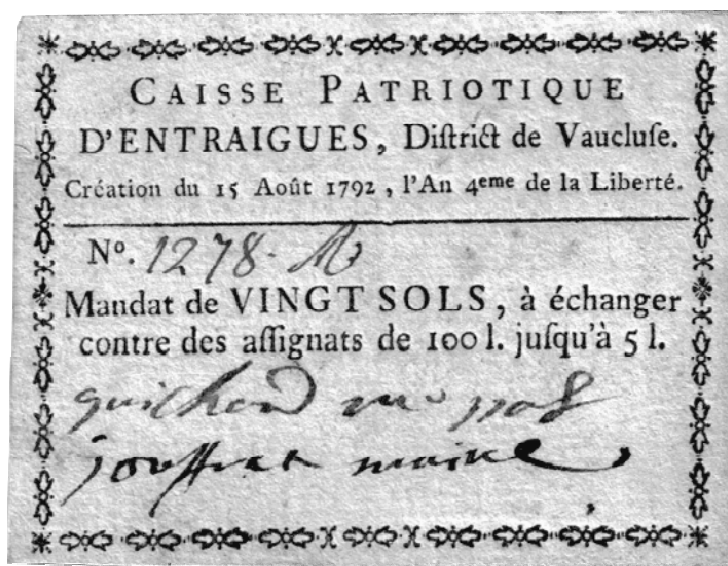 CAISSE PATRIOTIQUE
D'ENTRAIGUES, Diſtrict de Vaucluſe.
Création du 15 Août 1792, l'An 4eme de la Liberté.
Nº. 1278.
Mandat de VINGT SOLS, à échanger
contre des aſſignats de 100 l. juſqu'à 5 l.
jouffret maire